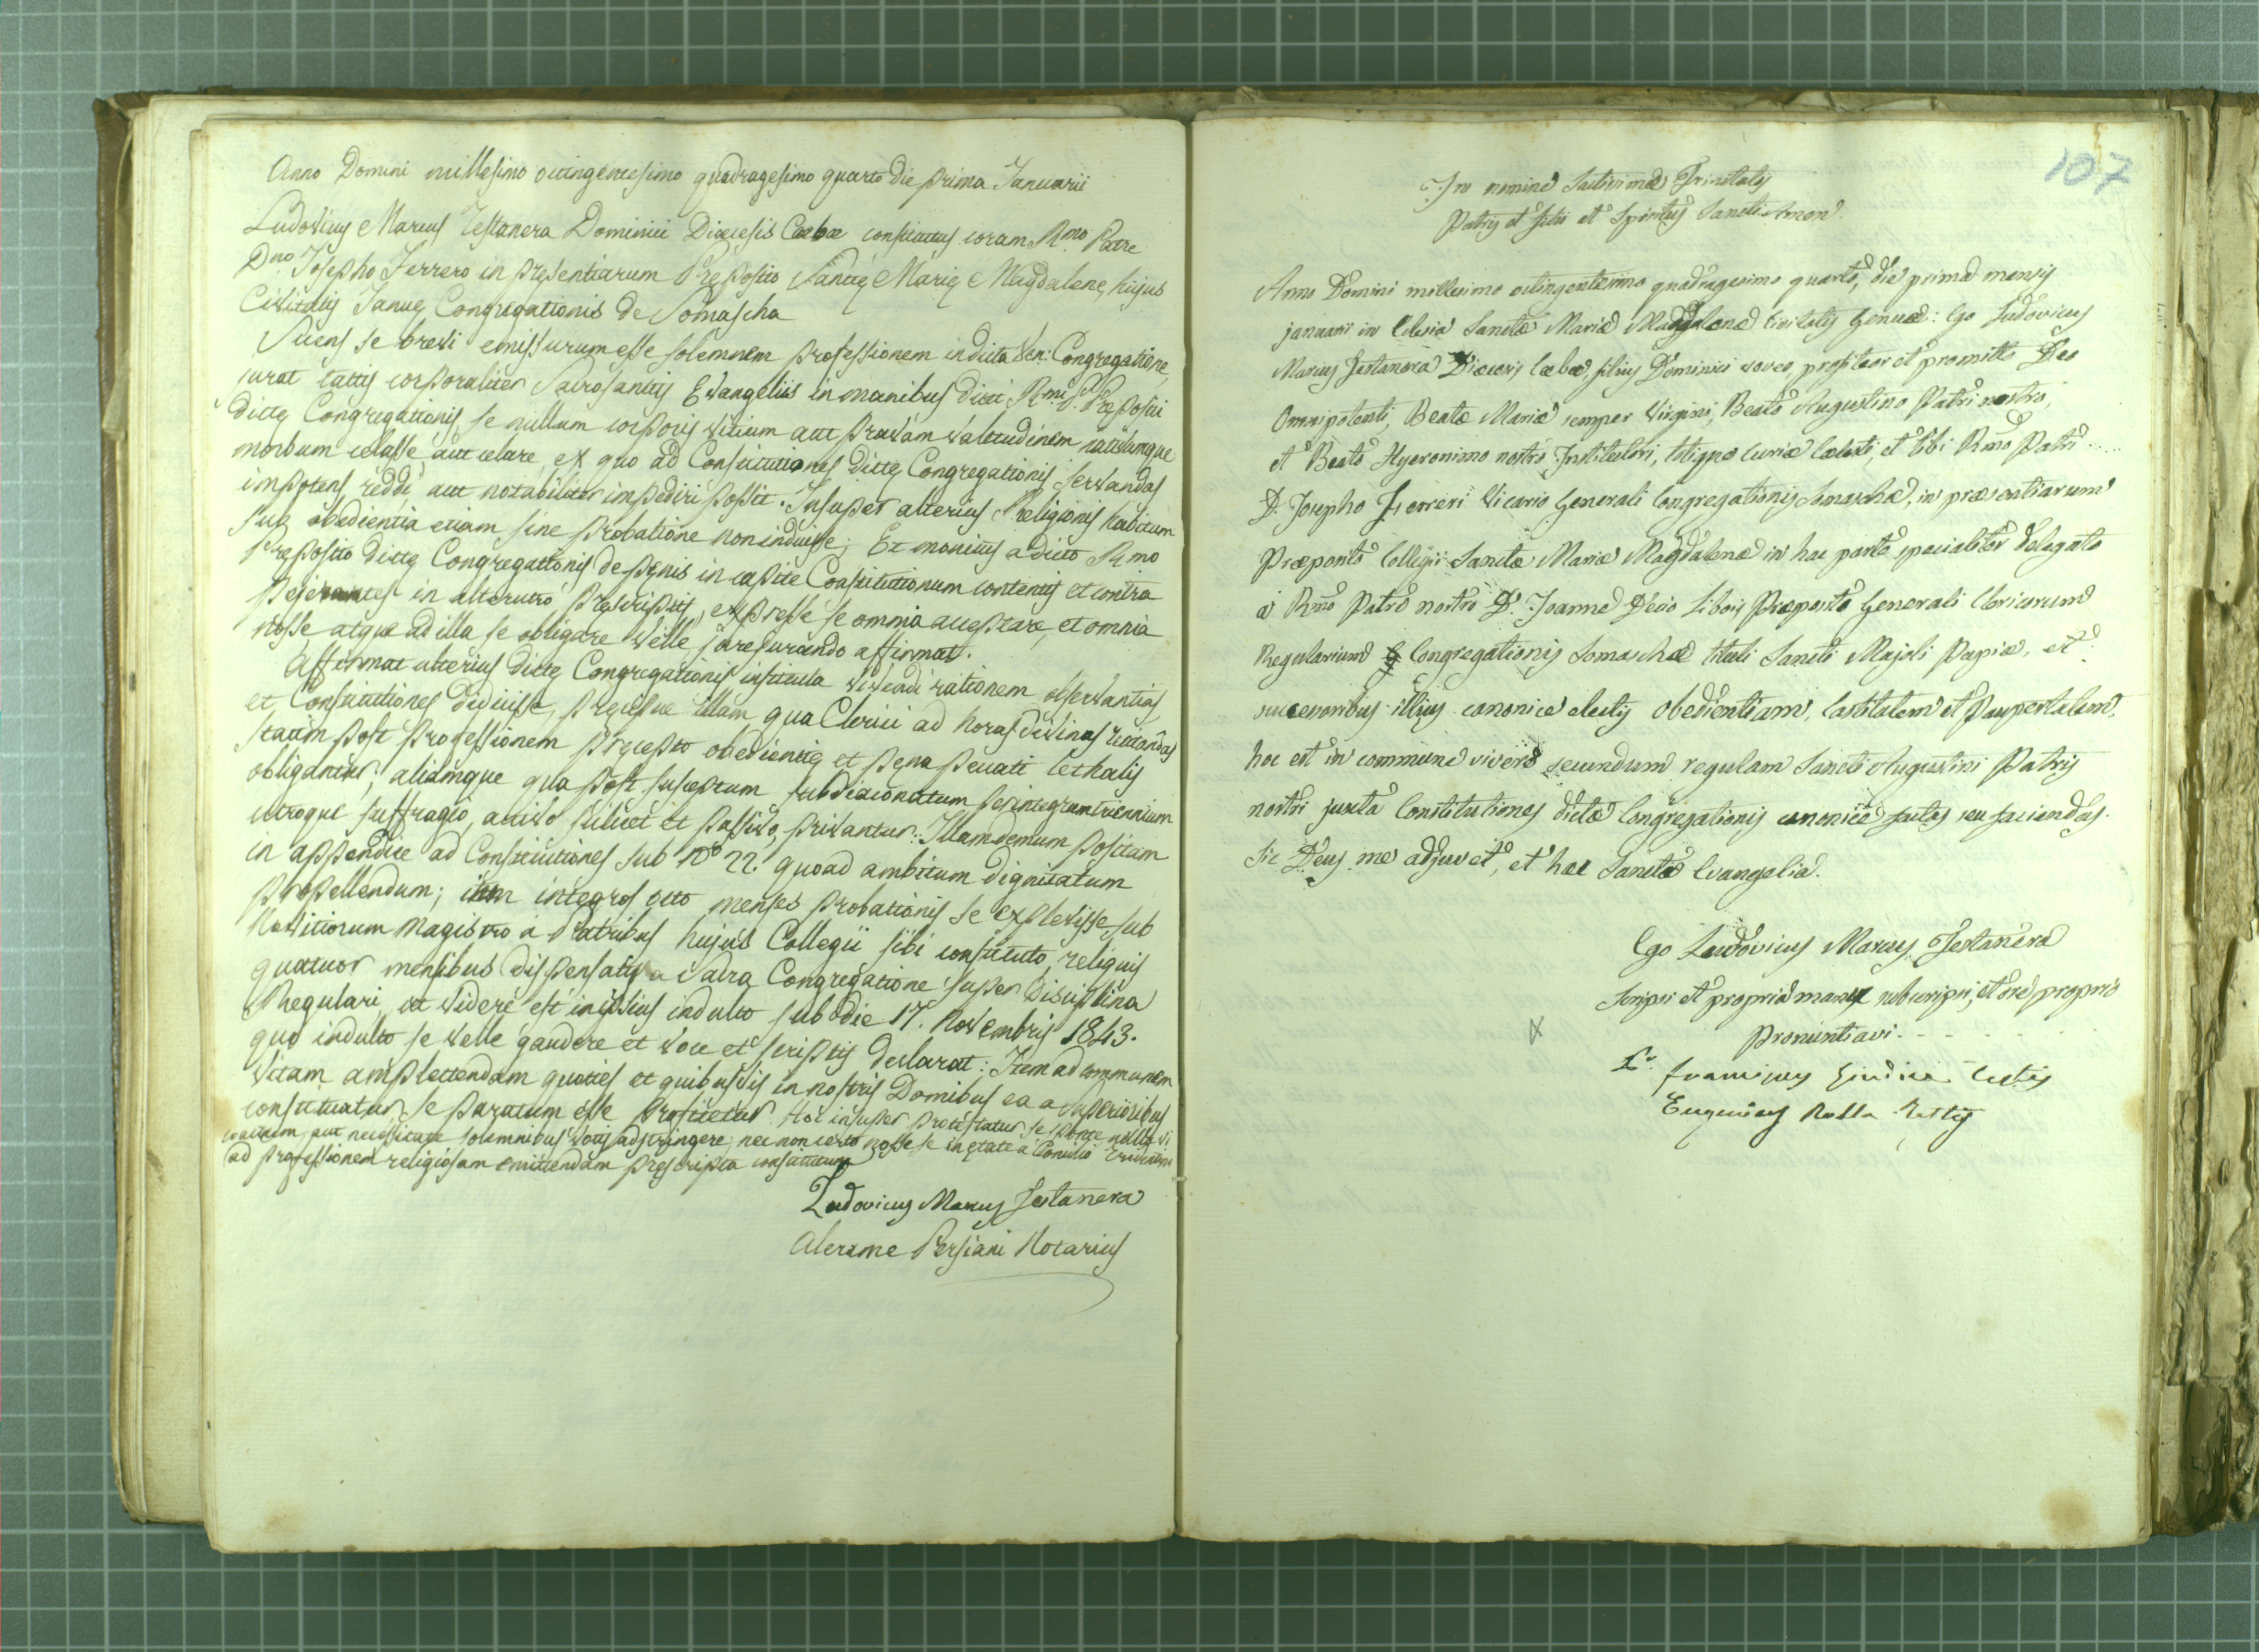 Anno Domini millesimo octingentesimo quadragesimo quarto die prima Januarii
Ludovicus Marius Testanera Dominici Diœcesis Cæbæ constitutus coram R.mo Patre
D.no Josepho Ferrero in presentiarum Preposito Sanctę Marię Magdalenę hujus
Civitatis Januę Congregationis de Somascha
Sciens se brevi emissurum esse solemnem professionem in dicta Ven: Congregatione,
jurat tactis corporaliter Sacrosanctis Evangeliis in manibus dicti R.mi P. Prępositi
dictę Congregationis se nullum corporis vitium aut pravam valetudinem nactumque
morbum celasse aut celare, ex quo ad Constitutiones dictę Congregationis servandas
impotens reddi, aut notabiliter impediri possit. Insuper alterius Religionis habitum
sub obedientia etiam sine probatione non induisse; Et monitus a dicto R.mo
Preposito dictę Congregationis de pęnis in capite Constitutionum contentis et contra
pejerantes in alterutro pręscriptis, expresse se omnia acceptare, et omnia
nosse atque ad illa se obligare velle, jurejurando affirmat.
Affirmat ulterius dictę Congregationis instituta vivendi rationem observantias
et Constitutiones didicisse, pręcipue illam, qua Clerici ad horas divinas recitandas
statim post professionem pręcepto obedientię et pęna peccati lethalis
obligantur; aliamque qua post susceptum subdiaconatum per integrum triennium
utroque suffragio, activo scilicet et passivo, privantur: Illam demum positam
in appendice ad Constitutiones sub N.o 22. quoad ambitum dignitatum
propellendum; item integros octo menses probationis se explevisse sub
Novitiorum Magistro a Patribus hujus Collegii sibi constituto, reliquis
quatuor mensibus dispensatis a Sacra Congregatione super Disciplina
Regulari, ut videre est in ipsius indulto sub die 17. Novembris 1843.
quo indulto se velle gaudere et voce et scriptis declarat: Item ad communem
vitam amplectendam quoties et quibusvis in nostris Domibus ea a Superioribus
constituatur, se paratum esse profitetur. Hoc insuper protestatur se sponte nulla vi
coactum aut necessitate solemnibus votis adstringere; nec non certo nosse se in ętate a Concilio Tridentino
ad professionem religiosam emittendam pręscripta constitutum
Ludovicus Marius Testanera
Alerame Persiani Notarius
107
In nomine Sactissimæ Trinitatis
Patris et Filii et Spiritus Sancti Amen.
Anno Domini millesimo octingentesimo quadragesimo quarto, die prima mensis
januarii in Eclesia Sanctæ Mariæ Magdalenæ Civitatis Genuæ: Ego Ludovicus
Marius Testanera Diœcesis Cæbæ, filius Dominici voveo, profiteor et promitto Deo
Omnipotenti, Beatæ Mariæ semper Virgini, Beato Augustino Patri nostro,
et Beato Hyeronimo nostro Institutori, totique Curiæ Cœlesti, et tibi R.mo Patri
D. Josepho Ferreri Vicario Generali Congregationis Somaschæ, in præsentiarum
Præposito Collegii Sanctæ Mariæ Magdalenæ in hac parte specialiter delegato
a R.mo Patre nostro D. Joanne Decio Libois Præposito Generali Clericorum
Regularium Congregationis Somaschæ tituli Sancti Majoli Papiæ, et
successoribus illius canonice electis obedientiam, Castitatem et Paupertatem,
hoc est in commune vivere secundum regulam Sancti Augustini Patris
nostri juxta Constitutiones dictæ Congregationis canonice factas seu faciendas.
Sic Deus me adjuvet, et hæc Sancta Evangelia.
Ego Ludovicus Marius Testanera
scripsi et propria manu subscripsi, et ore proprio
pronuntiavi.
Franciscus Giudice testis
Eugenius Rolla Testis